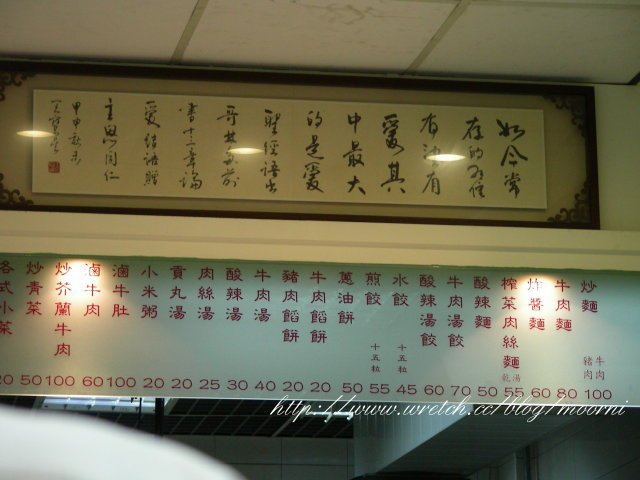 如今常
存的有信
有望有
愛其
中最大
的是愛
聖經語出
哥林多前
書十三章
愛
主恩同仁
甲申
炒麵 牛肉 豬肉 100
牛肉麵 80
炸醬麵 60
榨菜肉絲麵 湯乾 55
酸辣麵 50
牛肉湯餃 70
酸辣湯餃 60
水餃 十五粒 45
煎餃 十五粒 55
蔥油餅 50
牛肉餡餅 20
豬肉餡餅 20
牛肉湯 40
酸辣湯 30
肉絲湯 25
貢丸湯 20
小米粥 20
滷牛肚 100
滷牛肉 60
炒芥蘭牛肉 100
炒青菜 50
各式小菜 20
http://www.wretch.cc/blog/moorni